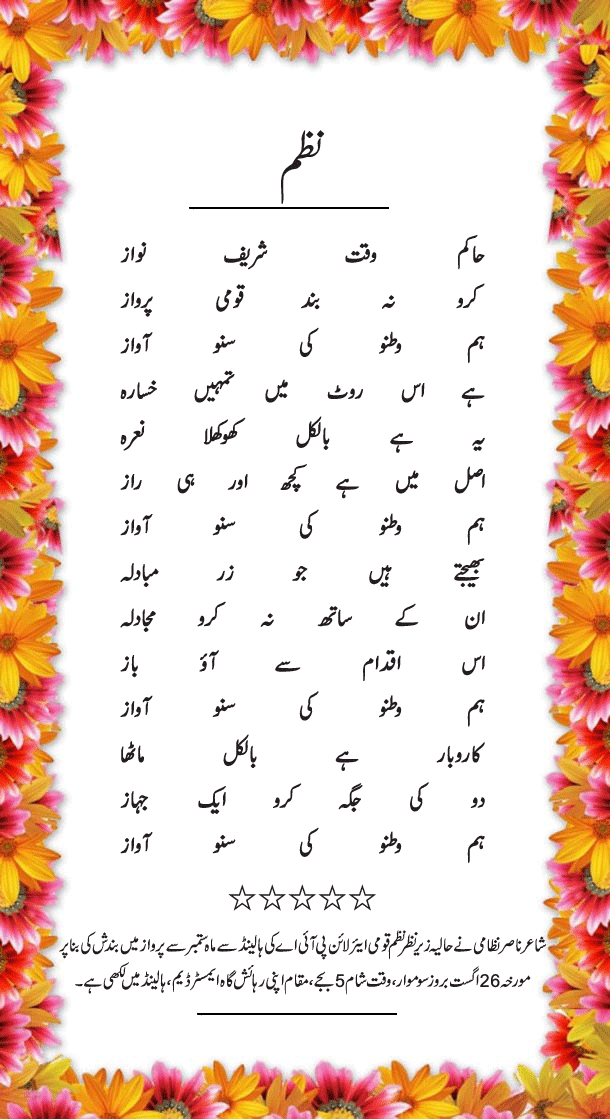 نظم
حاکم وقت شریف نواز
کرو نہ بند قومی پرواز
ہم وطنو کی سنو آواز
ہے اس روٹ میں تمہیں خسارہ
یہ ہے بالکل کھوکھلا نعرہ
اصل میں ہے کچھ اور ہی راز
ہم وطنو کی سنو آواز
بھیجتے ہیں جو زر مبادلہ
ان کے ساتھ نہ کرو مجادلہ
اس اقدام سے آؤ باز
ہم وطنو کی سنو آواز
کاروبار ہے بالکل ماٹھا
دو کی جگہ کرو ایک جہاز
ہم وطنو کی سنو آواز
☆☆☆☆☆
شاعر ناصر نظامی نے حالیہ زیر نظر نظم قومی ایئر لائن پی آئی اے کی ہالینڈ سے ماہ ستمبر سے پرواز میں بندش کی بنا پر
مورخہ 26 اگست بروز سوموار، وقت شام 5 بجے، مقام اپنی رہائش گاہ ایمسٹرڈیم، ہالینڈ میں لکھی ہے۔